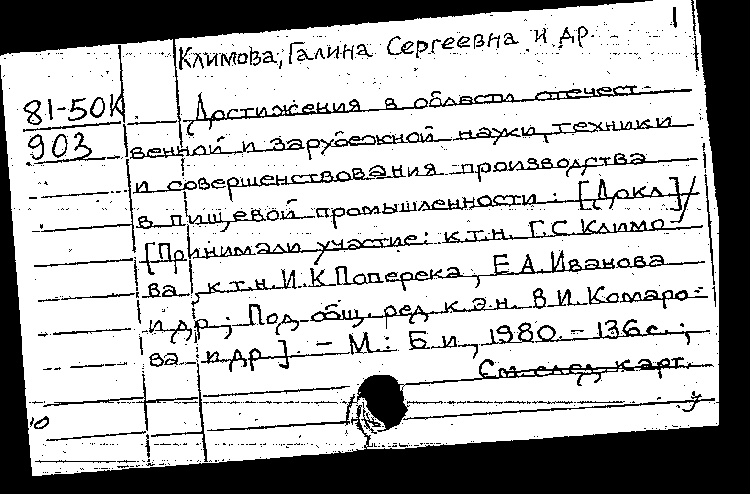 1
Климова, Галина Сергеевна и др.
81-50К
903
Достижения в области отечест-
венной и зарубежной науки, техники
и совершенствования производства
в пищевой промышленности: [Докл]/
[Принимали участие: к.т.н. Г.С. Климо-
ва, к.т.н. И.К Поперека, Е.А. Иванова
и др; Под общ. ред к.э.н. В.И. Комаро-
ва и др]. - М.: Б и, 1980. - 136с.;
См. след. карт.
у